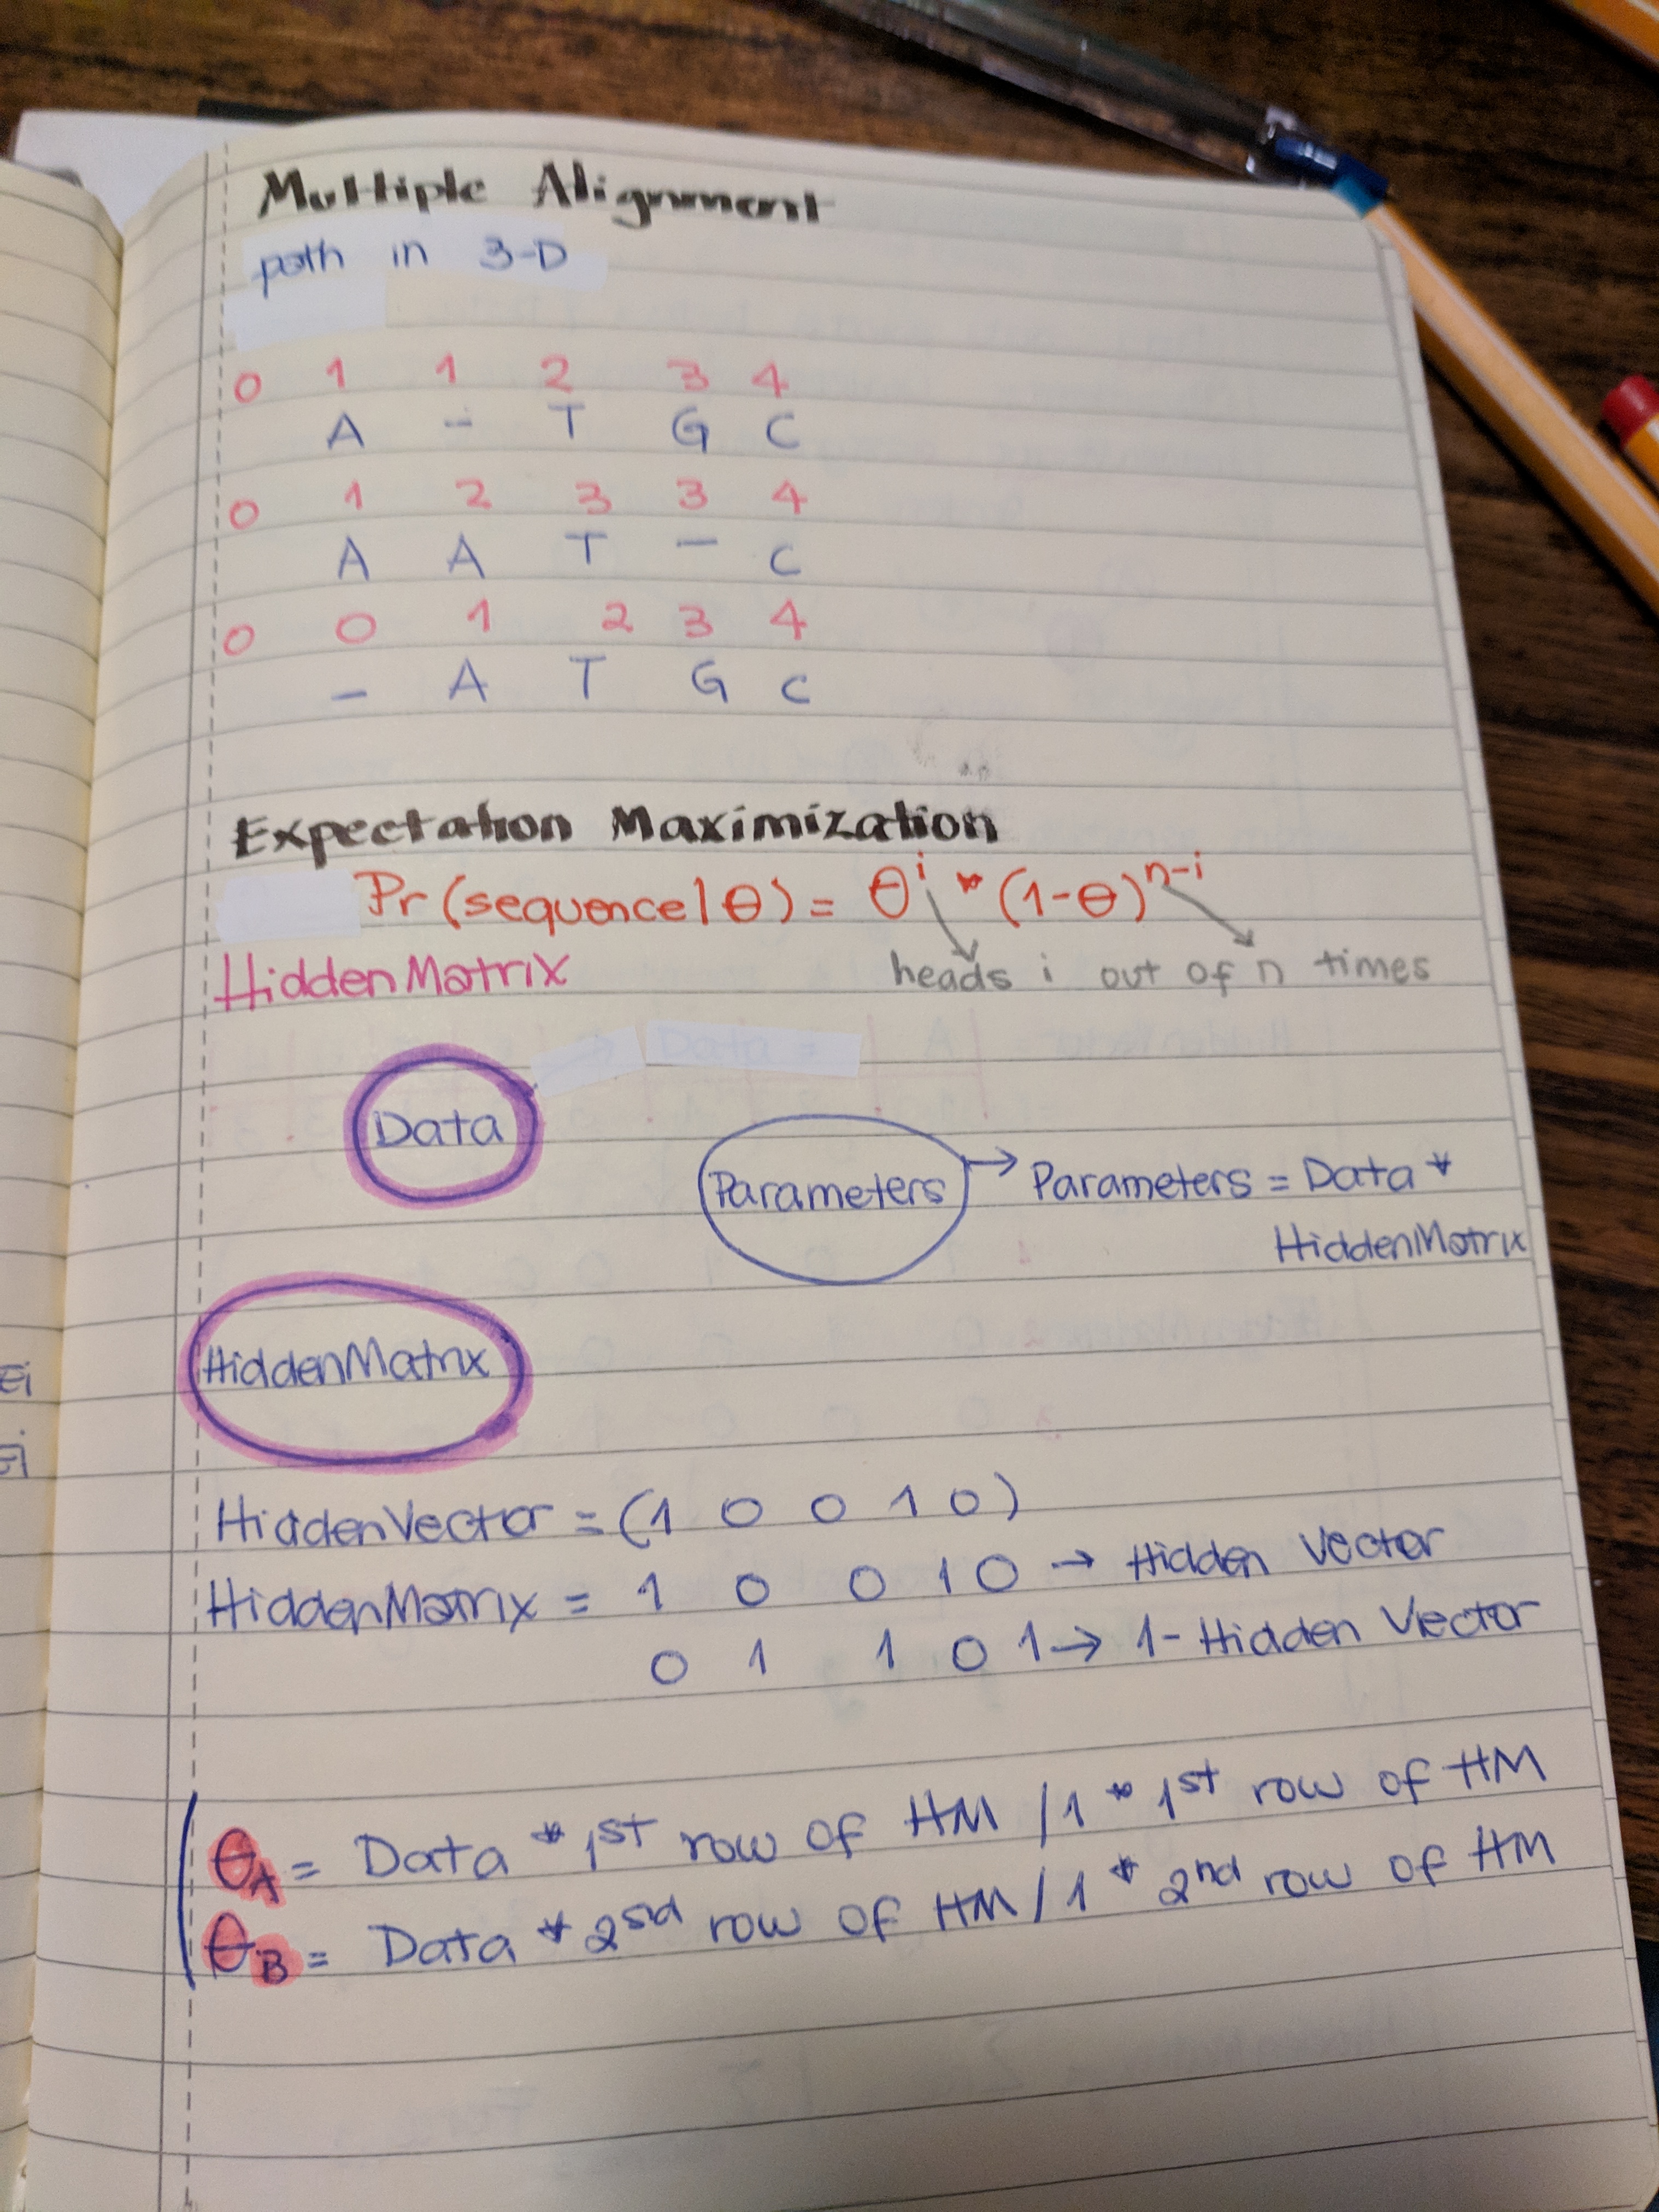 Multiple Alignment
path in 3-D
0 1 1 2 3 4
A - T G C
0 1 2 3 3 4
A A T - C
0 0 1 2 3 4
- A T G C
Expectation Maximization
Pr(sequence|θ) = θ^i * (1-θ)^n-i
HiddenMatrix
heads i out of n times
Data
Parameters → Parameters = Data *
HiddenMatrix
HiddenMatrix
HiddenVector = (1 0 0 1 0)
HiddenMatrix = 1 0 0 1 0 → Hidden Vector
0 1 1 0 1 → 1- Hidden Vector
θA = Data * 1st row of HM / 1 * 1st row of HM
θB = Data * 2snd row of HM / 1 * 2nd row of HM